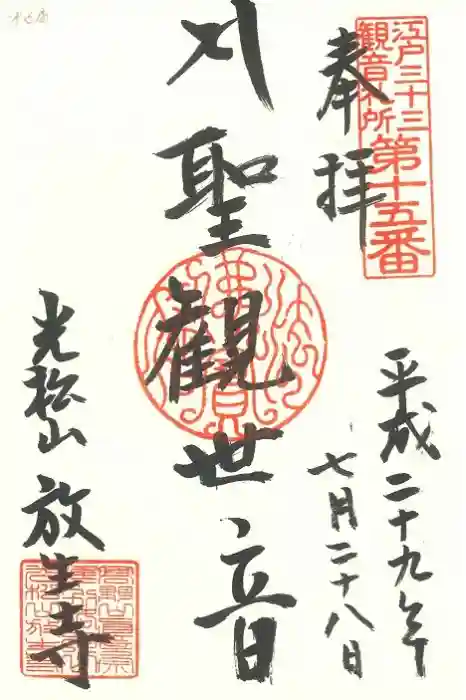 江戸三十三
観音札所
第十五番
奉拝
平成二十九年
七月二十八日
聖観世音
光松山 放生寺